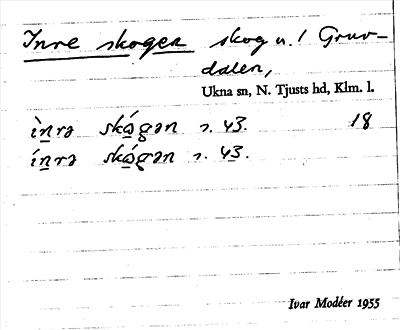 Inre skogen skog u. ! Gruv-
dalen,
Ukna sn, N. Tjusts hd, Klm. l.
ìnrə skógən s. 43. 18
ínrə skógən s. 43.
Ivar Modéer 1955